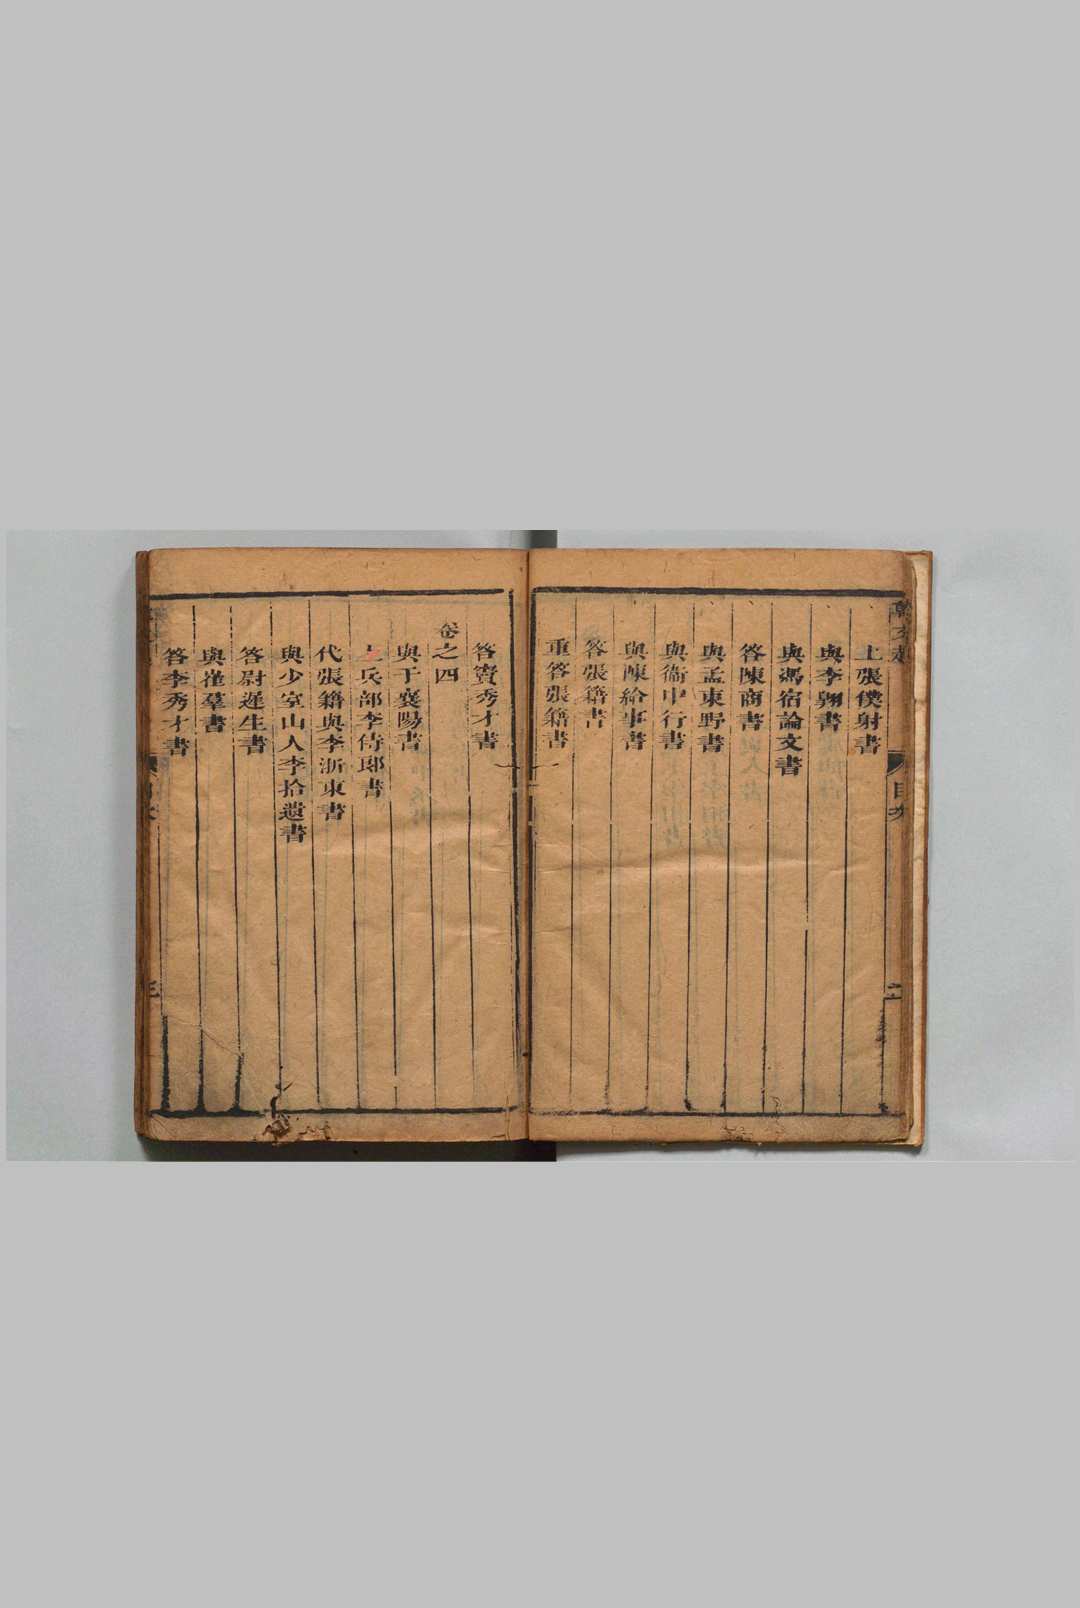 上張僕射書
與李翱書
與馮宿論文書
答陳商書
與孟東野書
與衞中行書
與陳給事書
答張籍書
重答張籍書
答竇秀才書
卷之四
與于襄陽書
上兵部李侍郎書
代張籍與李浙東書
與少室山人李拾遺書
答尉遲生書
與崔羣書
答李秀才書